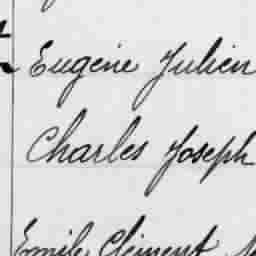 Eugène Julien
Charles Joseph
Emile Clément